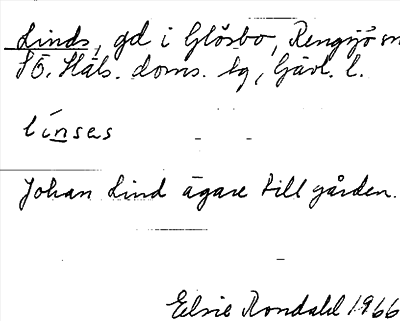 Linds, gd i Glösbo, Rengsjö sn
SÖ. Häls. doms. tg, Gävl. l.
línses
Johan Lind ägare till gården.
Elsie Rondahl 1966